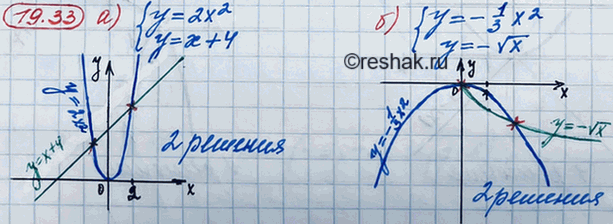 19.33 а) { y = 2x²
y = x + 4
б) { y = -1/3 x²
y = -√x
©Reshak.ru
y
y = 2x²
y = x+4
0
2
x
2 решения
y
0
x
y = -1/3 x²
y = -√x
2 решения